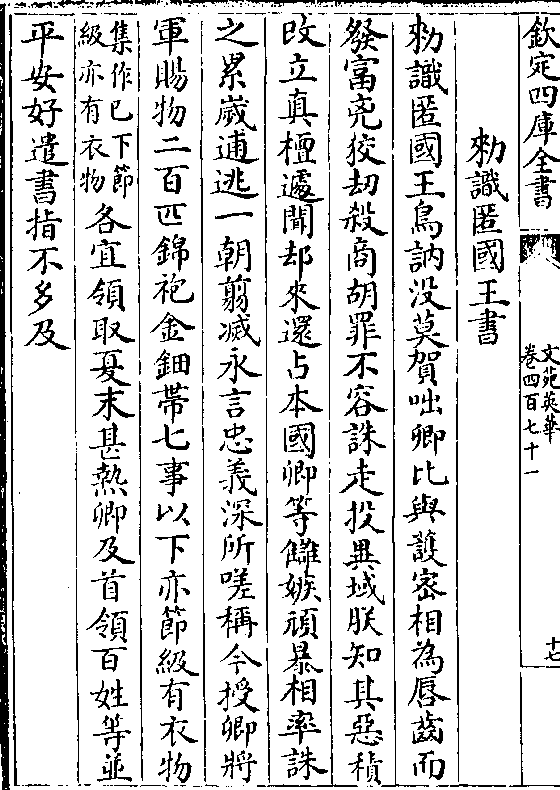 欽定四庫全書
文苑英華
卷四百七十一
十七
勑識匿國王書
勑識匿國王鳥訥没莫賀咄卿比與護宻相為唇齒而
發富兖狡劫殺商胡罪不容誅走投異域朕知其惡積
改立真檀遽聞却來還占本國卿等讎嫉頑暴相率誅
之累嵗逋逃一朝翦滅永言忠義深所嗟稱今授卿將
軍賜物二百匹錦袍金鈿帶七事以下亦節級有衣物
集作已下節
級亦有衣物
各宜領取夏末甚熱卿及首領百姓等並
平安好遣書指不多及